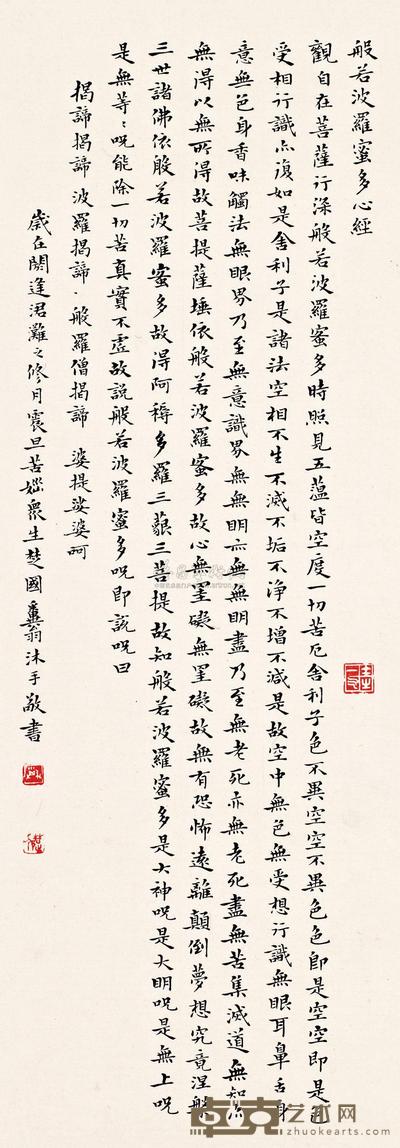 般若波羅蜜多心經
觀自在菩薩行深般若波羅蜜多時照見五蘊皆空度一切苦厄舍利子色不異空空不異色色即是空空即是色
受相行識亦復如是舍利子是諸法空相不生不滅不垢不淨不增不減是故空中無色無受想行識無眼耳鼻舌身
意無色身香味觸法無眼界乃至無意識界無無明亦無無明盡乃至無老死亦無老死盡無苦集滅道無知亦
無得以無所得故菩提薩埵依般若波羅蜜多故心無罣礙無罣礙故無有恐怖遠離顛倒夢想究竟涅般
三世諸佛依般若波羅蜜多故得阿耨多羅三藐三菩提故知般若波羅蜜多是大神咒是大明咒是無上咒
是無等〻咒能除一切苦真實不虛故說般若波羅蜜多咒即說咒曰
揭諦揭諦 波羅揭諦 般羅僧揭諦 婆提娑婆呵
歲在閼逢涒灘之修月震旦苦惱衆生楚國糞翁沐手敬書
卓克艺术网
zhuokearts.com